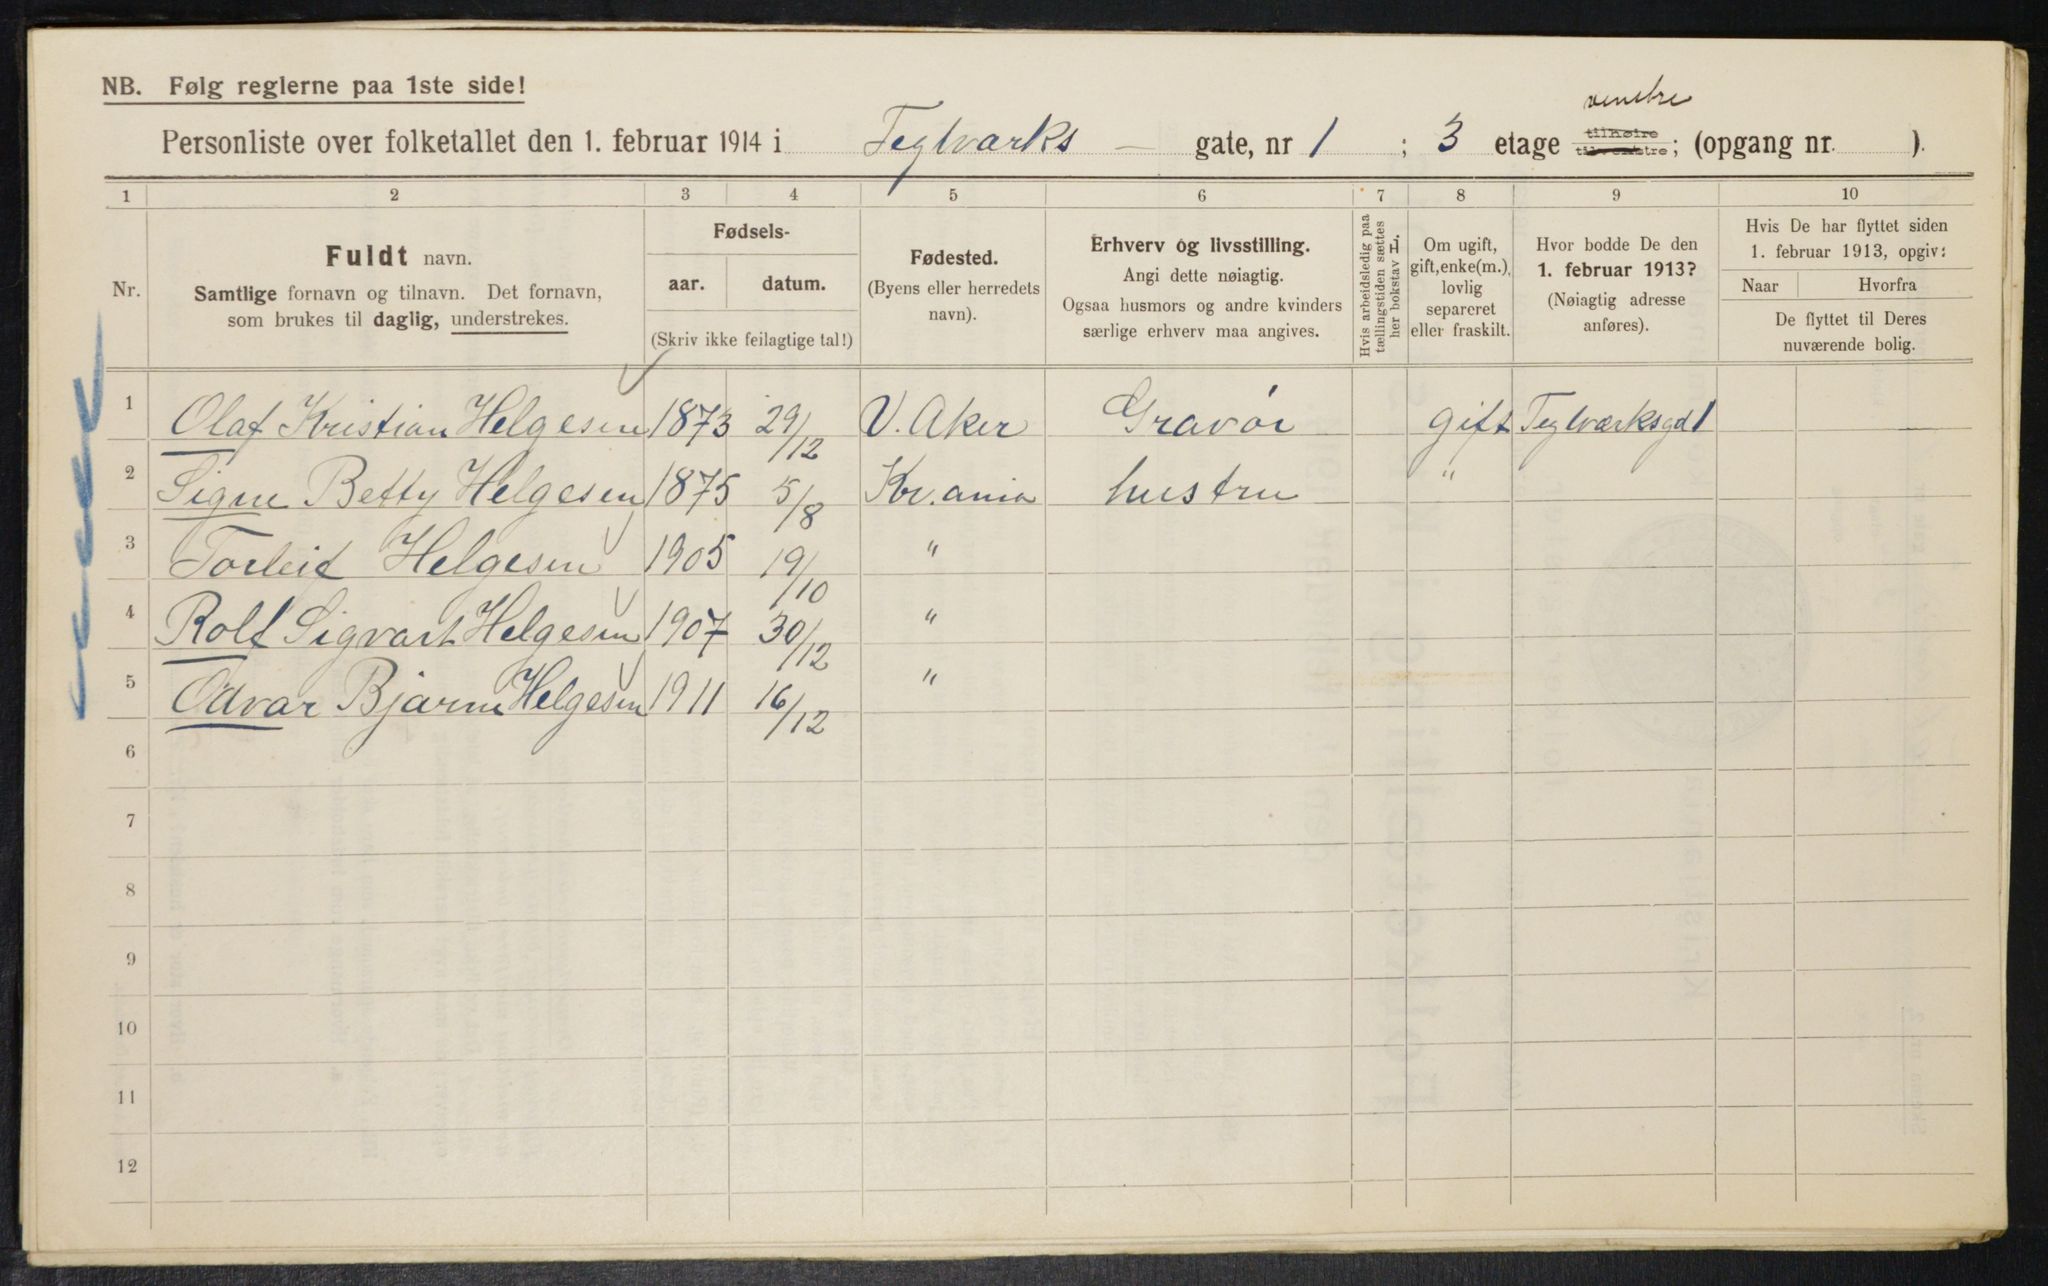 NB. Følg reglerne paa 1ste side!
venstre
Personliste over folketallet den 1. februar 1914 i Teglværks — gate, nr 1 ; 3 etage tilhøire tilvenstre; (opgang nr. ).
1 2 3 4 5 6 7 8 9 10
Nr.
Fuldt navn.
Samtlige fornavn og tilnavn. Det fornavn,
som brukes til daglig, understrekes.
Fødsels-
aar. datum.
(Skriv ikke feilagtige tal!)
Fødested.
(Byens eller herredets
navn).
Erhverv og livsstilling.
Angi dette nøiagtig.
Ogsaa husmors og andre kvinders
særlige erhverv maa angives.
Hvis arbeidsledig paa
tællingstiden sættes
her bokstav L.
Om ugift,
gift, enke(m.),
lovlig
separeret
eller fraskilt.
Hvor bodde De den
1. februar 1913?
(Nøiagtig adresse
anføres).
Hvis De har flyttet siden
1. februar 1913, opgiv:
Naar Hvorfra
De flyttet til Deres
nuværende bolig.
1 Olaf Kristian Helgesen 1873 29/12 V. Aker Gravør gift Teglværksgd 1
2 Signe Betty Helgesen 1875 5/8 Kr.ania hustru "
3 Torleif Helgesen 1905 19/10 "
4 Rolf Sigvart Helgesen 1907 30/12 "
5 Odvar Bjarne Helgesen 1911 16/12 "
6
7
8
9
10
11
12